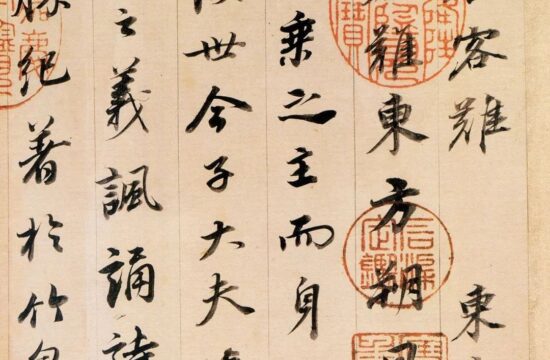 客難 東
難東方朔曰
乘之主而身
世今子大夫
之義諷誦詩
勝紀著於竹帛